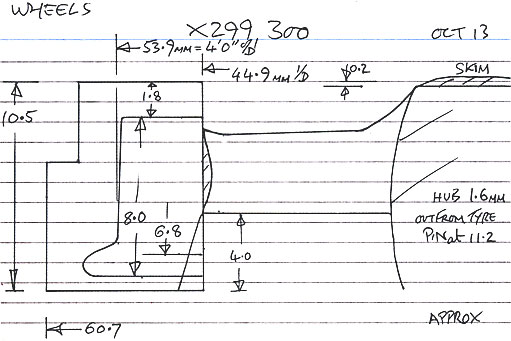 WHEELS
X299 300
OCT 13
53.9MM = 4'0" O/D
44.9MM I/D
0.2
SKIM
1.8
10.5
8.0
6.8
4.0
HUB 1.6MM
OUT FROM TYRE
PIN at 11.2
60.7
APPROX